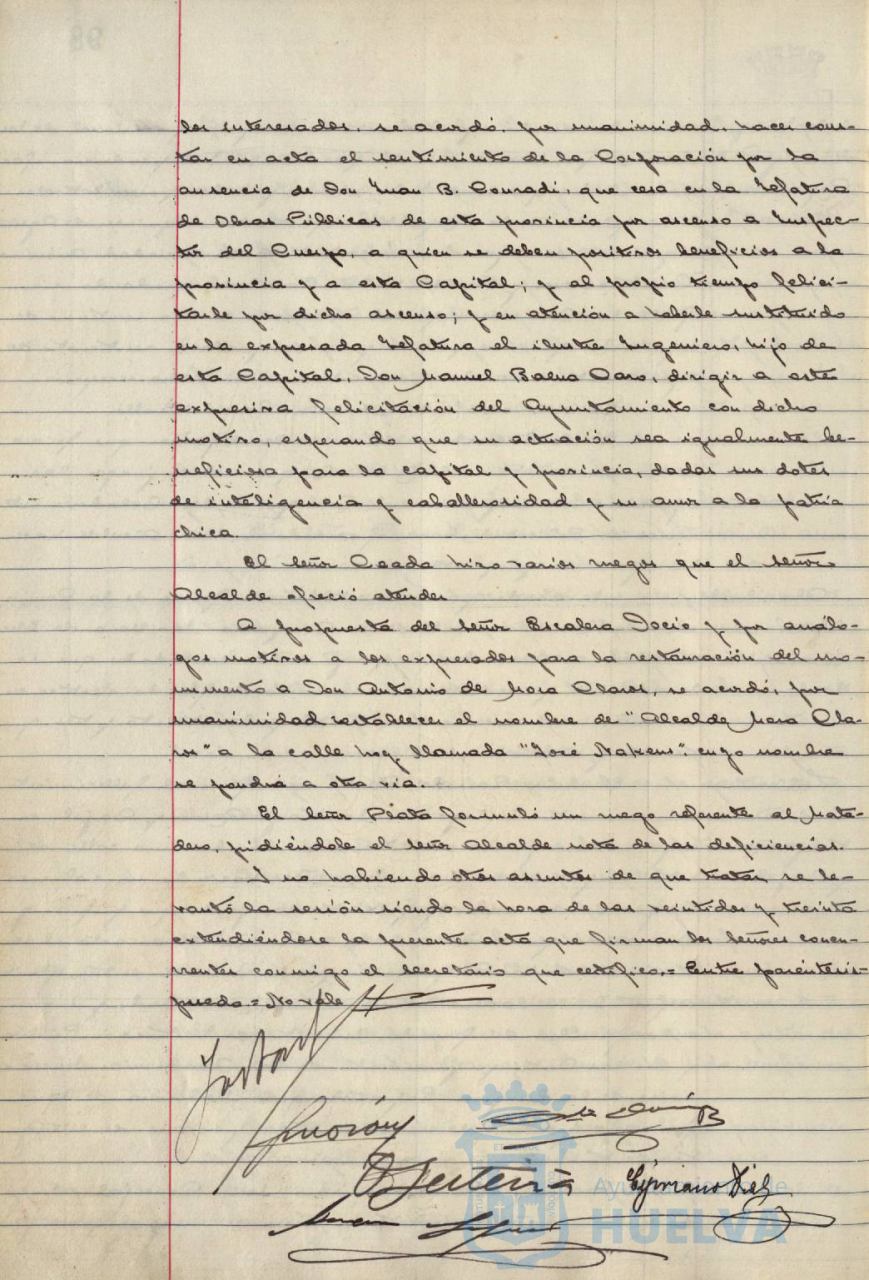 los interesados, se acordó, por unanimidad, hacer cons-
tar en acta el sentimiento de la Corporación por la
ausencia de Don Juan B. Conradi, que cesa en la Jefatura
de Obras Públicas de esta provincia por ascenso a Inspec-
tor del Cuerpo, a quien se deben positivos beneficios a la
provincia y a esta Capital; y al propio tiempo felici-
tarle por dicho ascenso; y en atención a haberle sustituido
en la expresada Jefatura el ilustre Ingeniero, hijo de
esta Capital, Don Manuel Baena Caro, dirigir a este
expresiva felicitación del Ayuntamiento con dicho
motivo, esperando que su actuación sea igualmente be-
neficiosa para la capital y provincia, dadas sus dotes
de inteligencia y caballerosidad y su amor a la patria
chica.
El señor hizo varios ruegos que el señor
Alcalde ofreció atender
A propuesta del señor Escalera Tocio y por análo-
gos motivos a los expresados para la restauración del mo-
numento a Don Antonio de Mora Claros, se acordó, por
unanimidad restablecer el nombre de "Alcalde Mora Cla-
ros" a la calle hoy llamada "José Nakens", cuyo nombre
se pondrá a otra vía.
El señor Plata formuló un ruego referente al Mata-
dero, pidiéndole el señor Alcalde nota de las deficiencias.
Y no habiendo otros asuntos de que tratar se le-
vantó la sesión siendo la hora de las veintidos y treinta
extendiéndose la presente acta que firman los señores concu-
rrentes conmigo el secretario que certifico. = Entre paréntesis =
puedo. = No vale
Cipriano
Ayuntamiento de
HUELVA